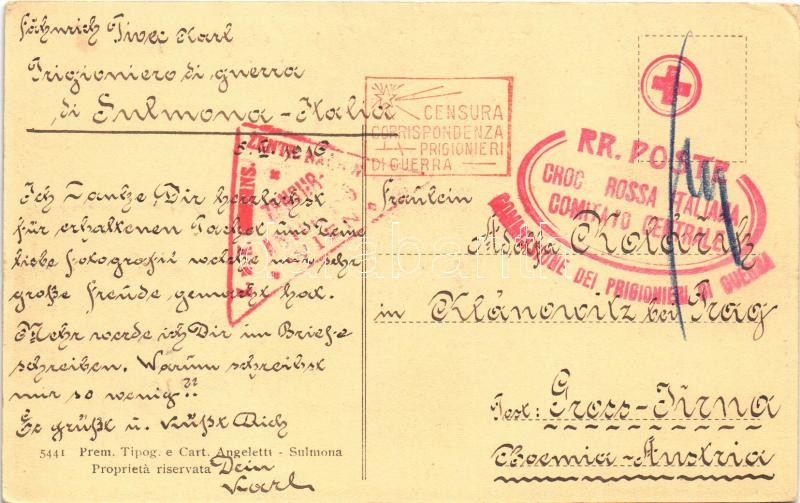 Fähnrich Karl
Prigioniero di guerra
di Sulmona - Italia
1916
Ich Danke Dir herzlichst
für erhaltenen Packet und Deine
liebe Fotografie welche mir sehr
große Freude gemacht hat.
Mehr werde ich Dir im Briefe
schreiben. Warum schreibst
mir so wenig??
Es grüßt u. küßt Dich
Dein
Karl
5441 Prem. Tipog. e Cart. Angeletti - Sulmona
Proprietà riservata
CENSURA
CORRISPONDENZA
PRIGIONIERI
DI GUERRA
RR. POSTE
CROCE ROSSA ITALIANA
COMITATO CENTRALE
COMMISSIONE DEI PRIGIONIERI DI GUERRA
Fräulein
Kolářik
in Klánowitz bei Prag
Post: Gross-Jirna
Boemia-Austria